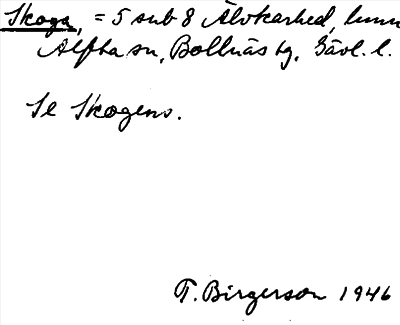 Skoga, = 5 sub 8 Älvkarhed,
Alfta sn, Bollnäs tg, Gävl. l.
Se Skogens.
T. Birgerson 1946